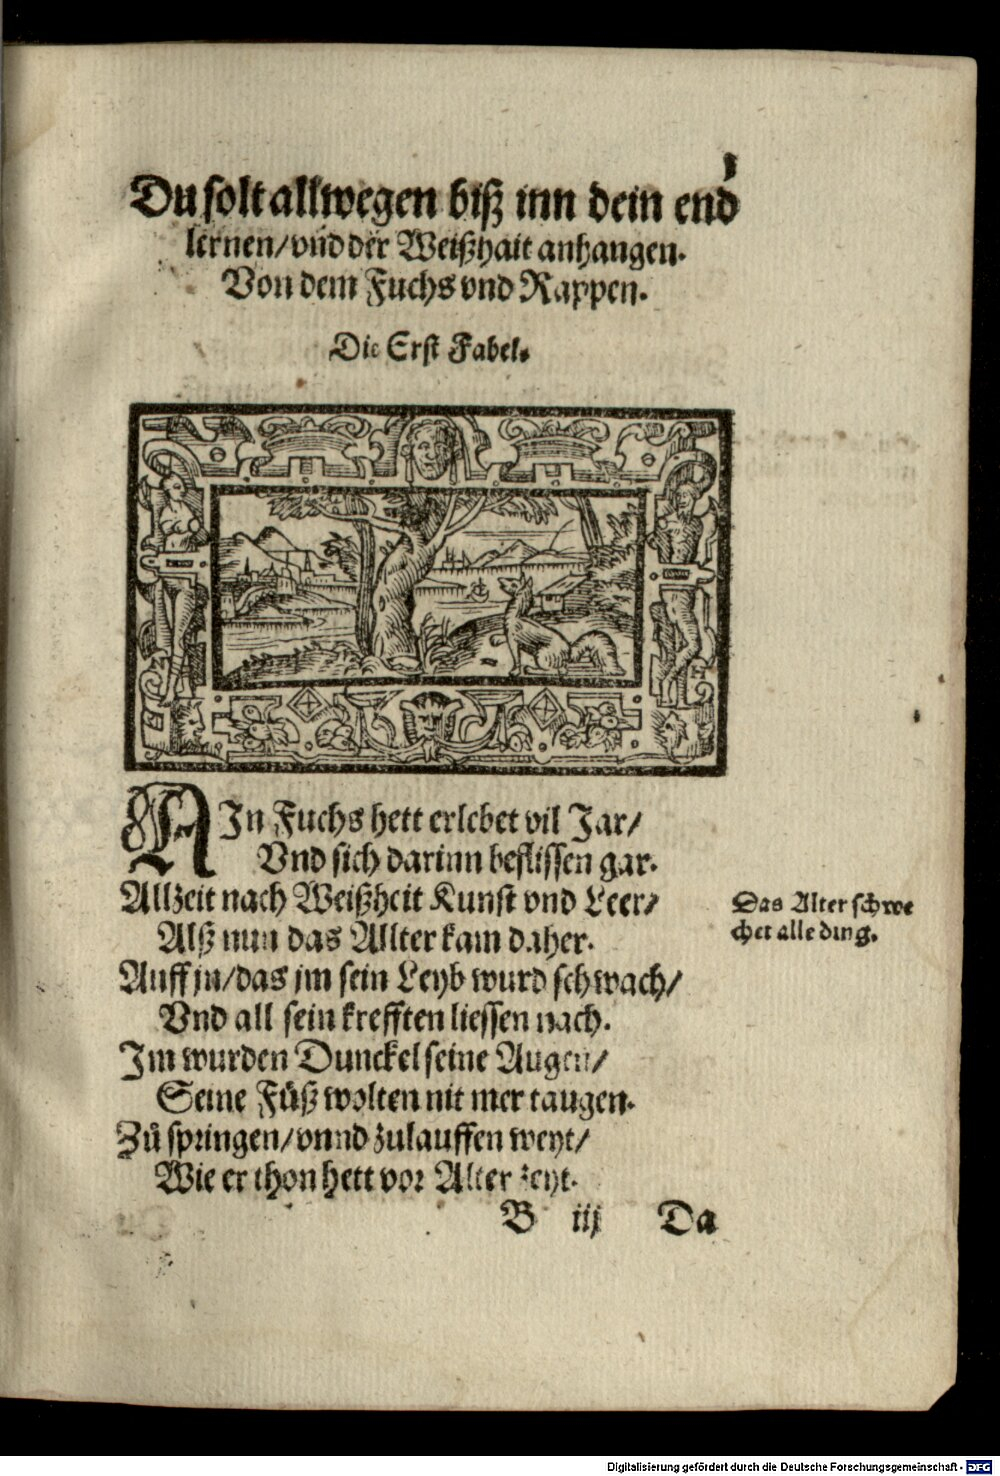 1
Du solt allwegen biß inn dein end
lernen/vnd der Weißhait anhangen.
Von dem Fuchs vnd Rappen.
Die Erst Fabel.
AIn Fuchs hett erlebet vil Jar/
Vnd sich darinn beflissen gar.
Allzeit nach Weißheit Kunst vnd Leer/
Alß nun das Allter kam daher.
Auff jn/das jm sein Leyb wurd schwach/
Vnd all sein krefften liessen nach.
Im wurden Dunckel seine Augen/
Seine Fůß wolten nit mer taugen.
Zů springen/vnnd zulauffen weyt/
Wie er thon hett vor Alter zeyt.
Das Alter schwe
chet alle ding.
B iij Da
Digitalisierung gefördert durch die Deutsche Forschungsgemeinschaft - DFG